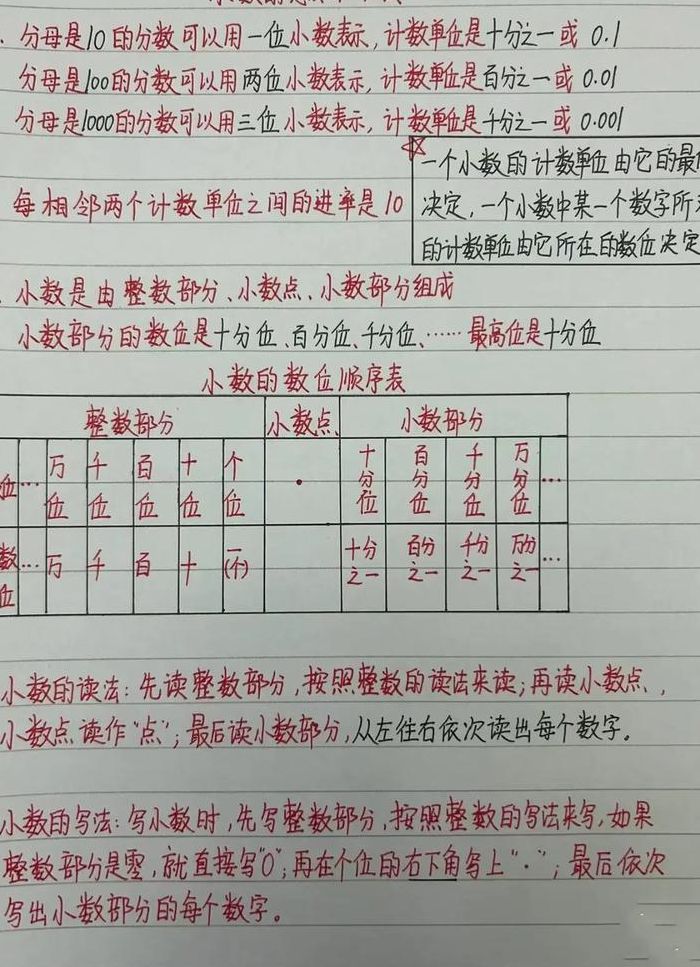 、分母是10的分数可以用一位小数表示,计数单位是十分之一或 0.1
分母是100的分数可以用两位小数表示,计数单位是百分之一或 0.01
分母是1000的分数可以用三位小数表示,计数单位是千分之一或 0.001
☆一个小数的计数单位由它的最
每相邻两个计数单位之间的进率是10
决定,一个小数中某一个数字所
的计数单位由它所在的数位决定
、小数是由整数部分、小数点、小数部分组成
小数部分的数位是十分位、百分位、千分位、……最高位是十分位
小数的数位顺序表
整数部分 小数点 小数部分
位 … 万位 千位 百位 十位 个位 · 十分位 百分位 千分位 万分位 …
数位 … 万 千 百 十 一(个) 十分之一 百分之一 千分之一 万分之一 …
小数的读法:先读整数部分,按照整数的读法来读;再读小数点,
小数点读作“点”;最后读小数部分,从左往右依次读出每个数字。
小数的写法:写小数时,先写整数部分,按照整数的写法来写,如果
整数部分是零,就直接写“0”;再在个位的右下角写上“·”;最后依次
写出小数部分的每个数字。